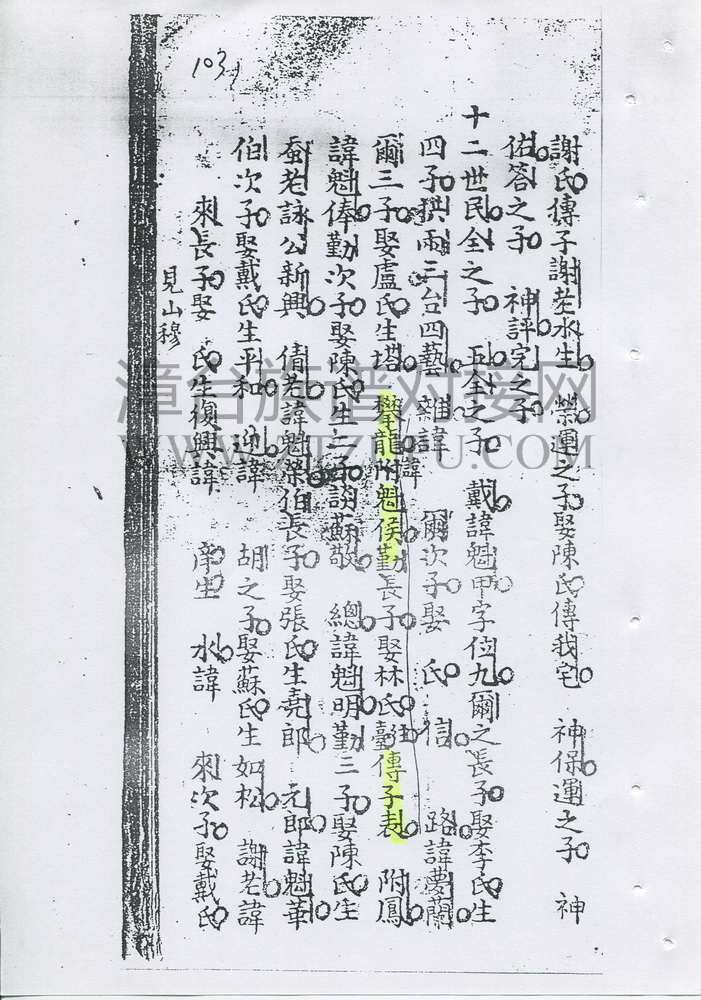 103
謝氏傳子謝老水生 榮運之子娶陳氏傳我宅 神保運之子 神
佑答之子 神評完之子
十二世民全之子 五全之子 戴諱魁甲字位九爾之長子娶李氏生
四子 兩三台四藝 雜諱 爾次子娶 氏 信 路諱慶蘭
爾三子娶盧氏生塔 攀龍附諱魁侯勤長子娶林氏 傳子表 附鳳
諱魁俸勤次子娶陳氏生二子談蘇敬 總諱魁明勤三子娶陳氏生
老詠公新興 倩老諱魁榮伯長子娶張氏生堯郎 元郎諱魁華
伯次子娶戴氏生平和 迎諱 胡之子娶蘇氏生如松 謝老諱
來長子娶 氏生復興諱 生 水諱 來次子娶戴氏
見山穆
漳台族谱对接网
WWW.ZTZUPU.COM